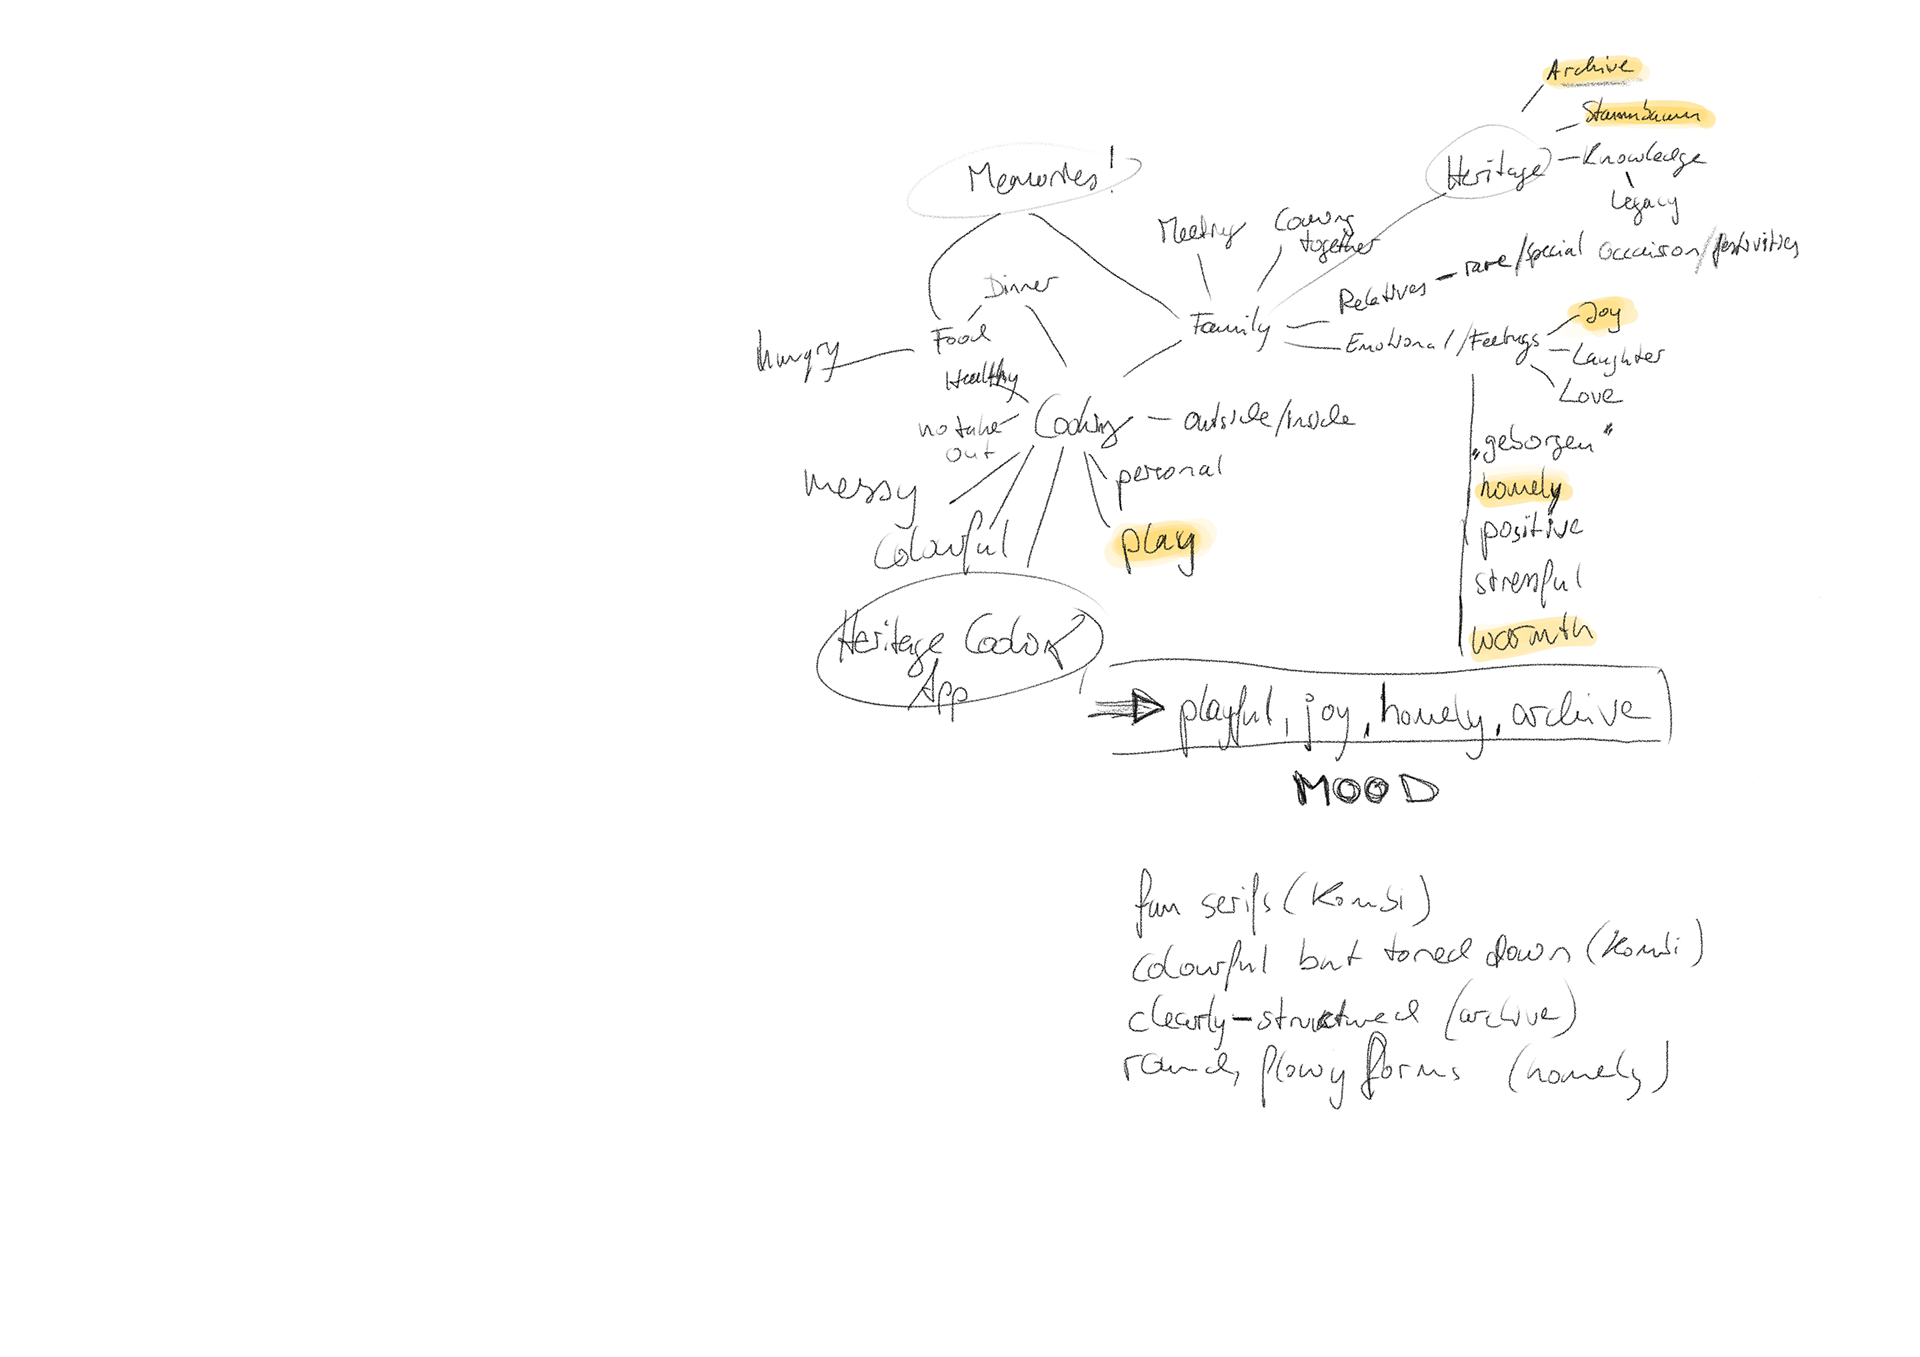 Archive
Stammbaum
Memories!
Heritage
Knowledge
Legacy
Meeting
Coming
together
Relatives
rare/special occasion/festivities
Dinner
Food
Family
Joy
Emotional/Feelings
Laughter
Love
hungry
Healthy
no take
out
Cooking
outside/inside
„geborgen"
personal
messy
homely
colourful
play
positive
stressful
warmth
Heritage Cooking
App
playful, joy, homely, archive
MOOD
fun serifs (Kombi)
colourful but toned down (Kombi)
clearly-structured (archive)
round, flowy forms (homely)